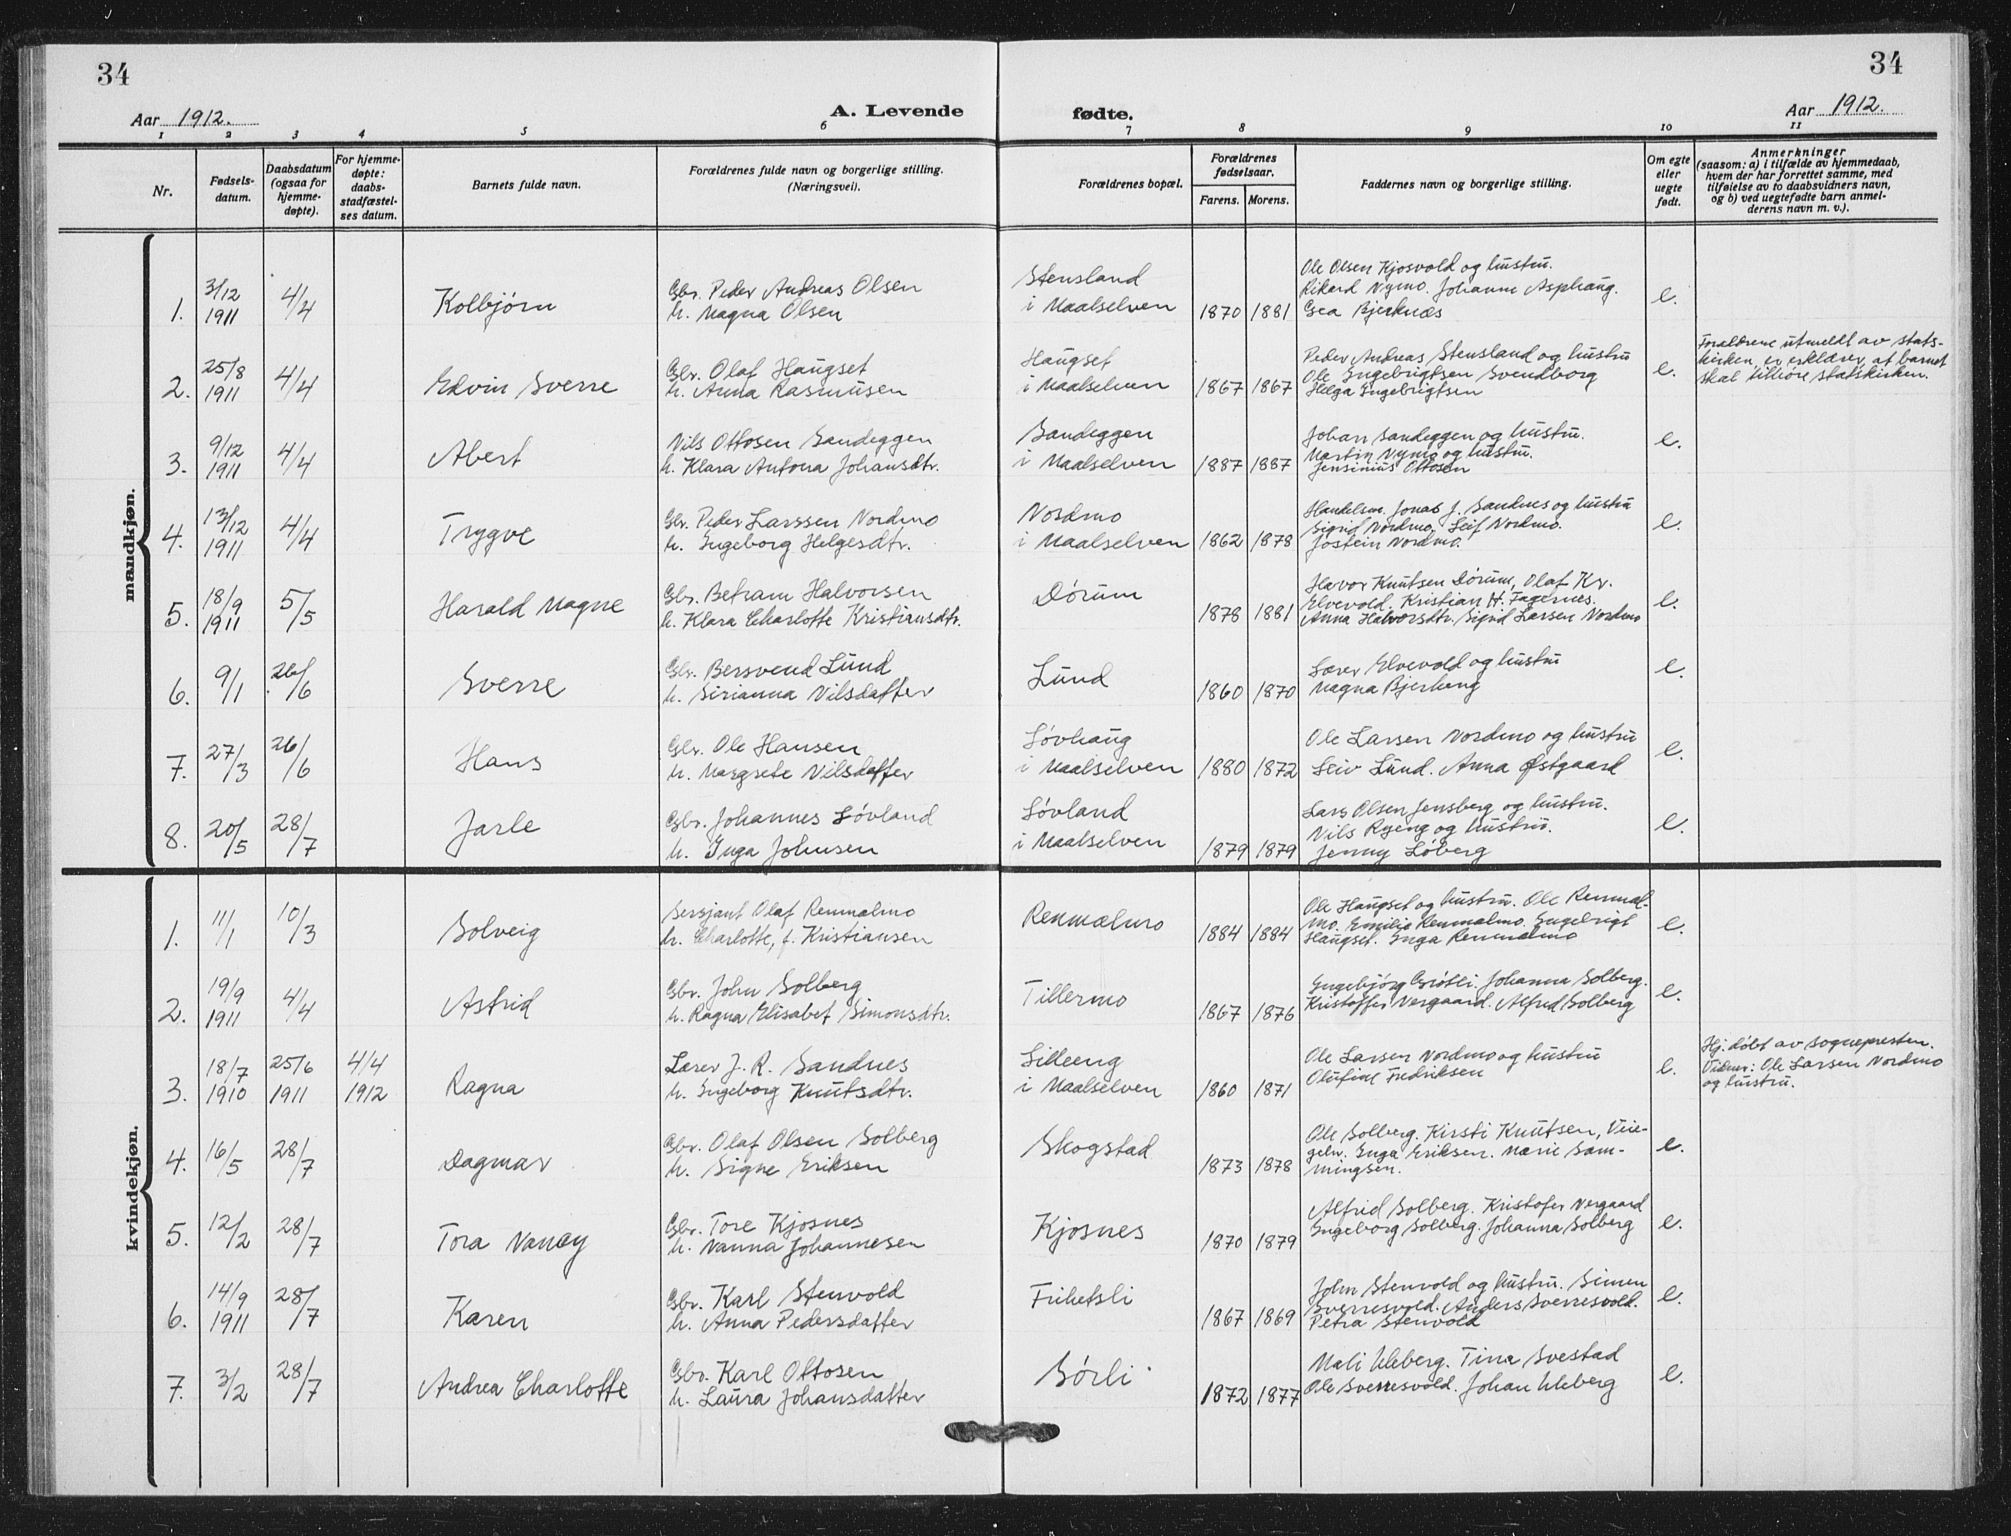 34
34
Aar 1912.
A. Levende
fødte.
Aar 1912.
1 2 3 4 5 6 7 8 9 10 11
Nr.
Fødsels-
datum.
Daabsdatum
(ogsaa for
hjemme-
døpte).
For hjemme-
døpte:
daabs-
stadfæstel-
ses datum.
Barnets fulde navn.
Forældrenes fulde navn og borgerlige stilling.
(Næringsvei).
Forældrenes bopæl.
Forældrenes
fødselsaar.
Farens. Morens.
Faddernes navn og borgerlige stilling.
Om egte
eller
uegte
født.
Anmerkninger
(saasom: a) i tilfælde av hjemmedaab,
hvem der har forrettet samme, med
tilføielse av to daabsvidners navn,
og b) ved uegtefødte barn anmel-
derens navn m. v.).
mandkjøn.
1. 3/12 1911 4/4 Kolbjørn
Gbr. Peder Andreas Olsen
h. Magna Olsen
Stensland
i Maalselven
1870 1881
Ole Olsen Kjosvold og hustru.
Rikard Nymo. Johanne Asphaug.
Gea Bjerknæs
e.
2. 25/8 1911 4/4 Edvin Sverre
Gbr. Olaf Haugset
h. Anna Rasmusen
Haugset
i Maalselven
1867 1867
Peder Andreas Stensland og hustru
Ole Engebrigtsen Svendborg
Helga Engebrigtsen
e.
Forældrene utmeldt av stats-
kirken, er erklærer, at barnet
skal tilhøre statskirken.
3. 9/12 1911 4/4 Abert
Nils Ottosen Sandeggen
h. Klara Antona Johansdtr.
Sandeggen
i Maalselven
1887 1887
Johan Sandeggen og hustru.
Martin Nymo og hustru.
Jensinius Ottosen
e.
4. 13/12 1911 4/4 Trygve
Gbr. Peder Larssen Nordmo
h. Ingeborg Helgesdtr.
Nordmo
i Maalselven
1862 1878
Handelsm. Jonas J. Sandnes og hustru
Sigrid Nordmo. Leif Nordmo.
Jostein Nordmo.
e.
5. 18/9 1911 5/5 Harald Magne
Gbr. Betram Halvorsen
h. Klara Charlotte Kristiansdtr.
Dørum
1878 1881
Havor Knutsen Dørum, Olaf Kr.
Elvevold. Kristian H. Fagernes.
Anna Halvorsdtr. Sigrid Larsen Nordmo
e.
6. 9/1 26/6 Sverre
Gbr. Bersvend Lund
h. Sirianna Nilsdatter
Lund
1860 1870
Lærer Elvevold og hustru
Magna Bjerkeng
e.
7. 27/3 26/6 Hans
Gbr. Ole Hansen
h. Margrete Nilsdatter
Løvhaug
i Maalselven
1880 1872
Ole Larsen Nordmo og hustru
Leiv Lund. Anna Østgaard
e.
8. 20/5 28/7 Jarle
Gbr. Johannes Løvland
h. Inga Johnsen
Løvland
i Maalselven
1879 1879
Lars Olsen Jensberg og hustru.
Nils Ryeng og hustru.
Jenny Løberg
e.
kvindekjøn.
1. 11/1 10/3 Solveig
Sersjant Olaf Renmælmo
h. Charlotte, f. Kristiansen
Renmælmo
1884 1884
Ole Haugset og hustru. Ole Renmæl-
mo. Emilie Renmælmo. Engebrigt
Haugset. Inga Renmælmo
e.
2. 19/9 1911 4/4 Astrid
Gbr. John Solberg
h. Ragna Elisabet Simonsdtr.
Tillermo
1867 1876
Engebjørg Grøtli. Johanna Solberg.
Kristoffer Vergaard. Alfred Solberg
e.
3. 18/7 1910 25/6 1911 4/4 1912 Ragna
Lærer J. R. Sandnes
h. Ingeborg Knutsdtr.
Lilleeng
i Maalselven
1860 1871
Ole Larsen Nordmo og hustru
Olufine Fredriksen
e.
Hj. døbt av sognepresten.
Vidner: Ole Larsen Nordmo
og hustru.
4. 16/5 28/7 Dagmar
Gbr. Olaf Olsen Solberg
h. Signe Eriksen
Skogstad
1873 1878
Ole Solberg. Kirsti Knutsen, Veie-
gelv. Inga Eriksen. Marie Sam-
mingsen.
e.
5. 12/2 28/7 Tora Nancy
Gbr. Tore Kjosnes
h. Nanna Johannesen
Kjosnes
1870 1879
Alfrid Solberg. Kristofer Vergaard
Ingeborg Solberg. Johanna Solberg
e.
6. 14/9 1911 28/7 Karen
Gbr. Karl Stenvold
h. Anna Pedersdatter
Frihetsli
1867 1869
John Stenvold og hustru. Simen
Sverresvold. Anders Sverresvold.
Petra Stenvold
e.
7. 3/2 28/7 Andrea Charlotte
Gbr. Karl Ottosen
h. Laura Johansdatter
Sørli
1872 1877
Mali Uleberg. Tina Svestad
Ole Sverresvold. Johan Uleberg
e.